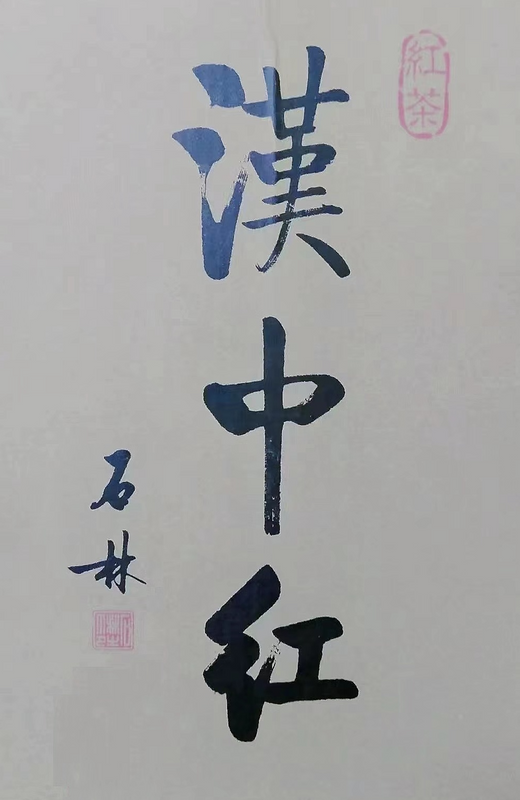 紅茶
漢中红
石林